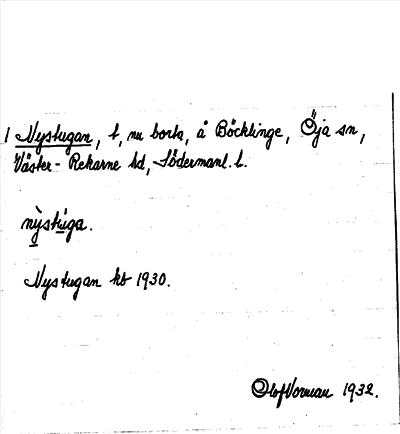 1 Nystugan, t, nu borta, å Böcklinge, Öja sn,
Väster-Rekarne hd, Södermanl. l.
nỳstúga.
Nystugan kb 1930.
Olof Vorman 1932.